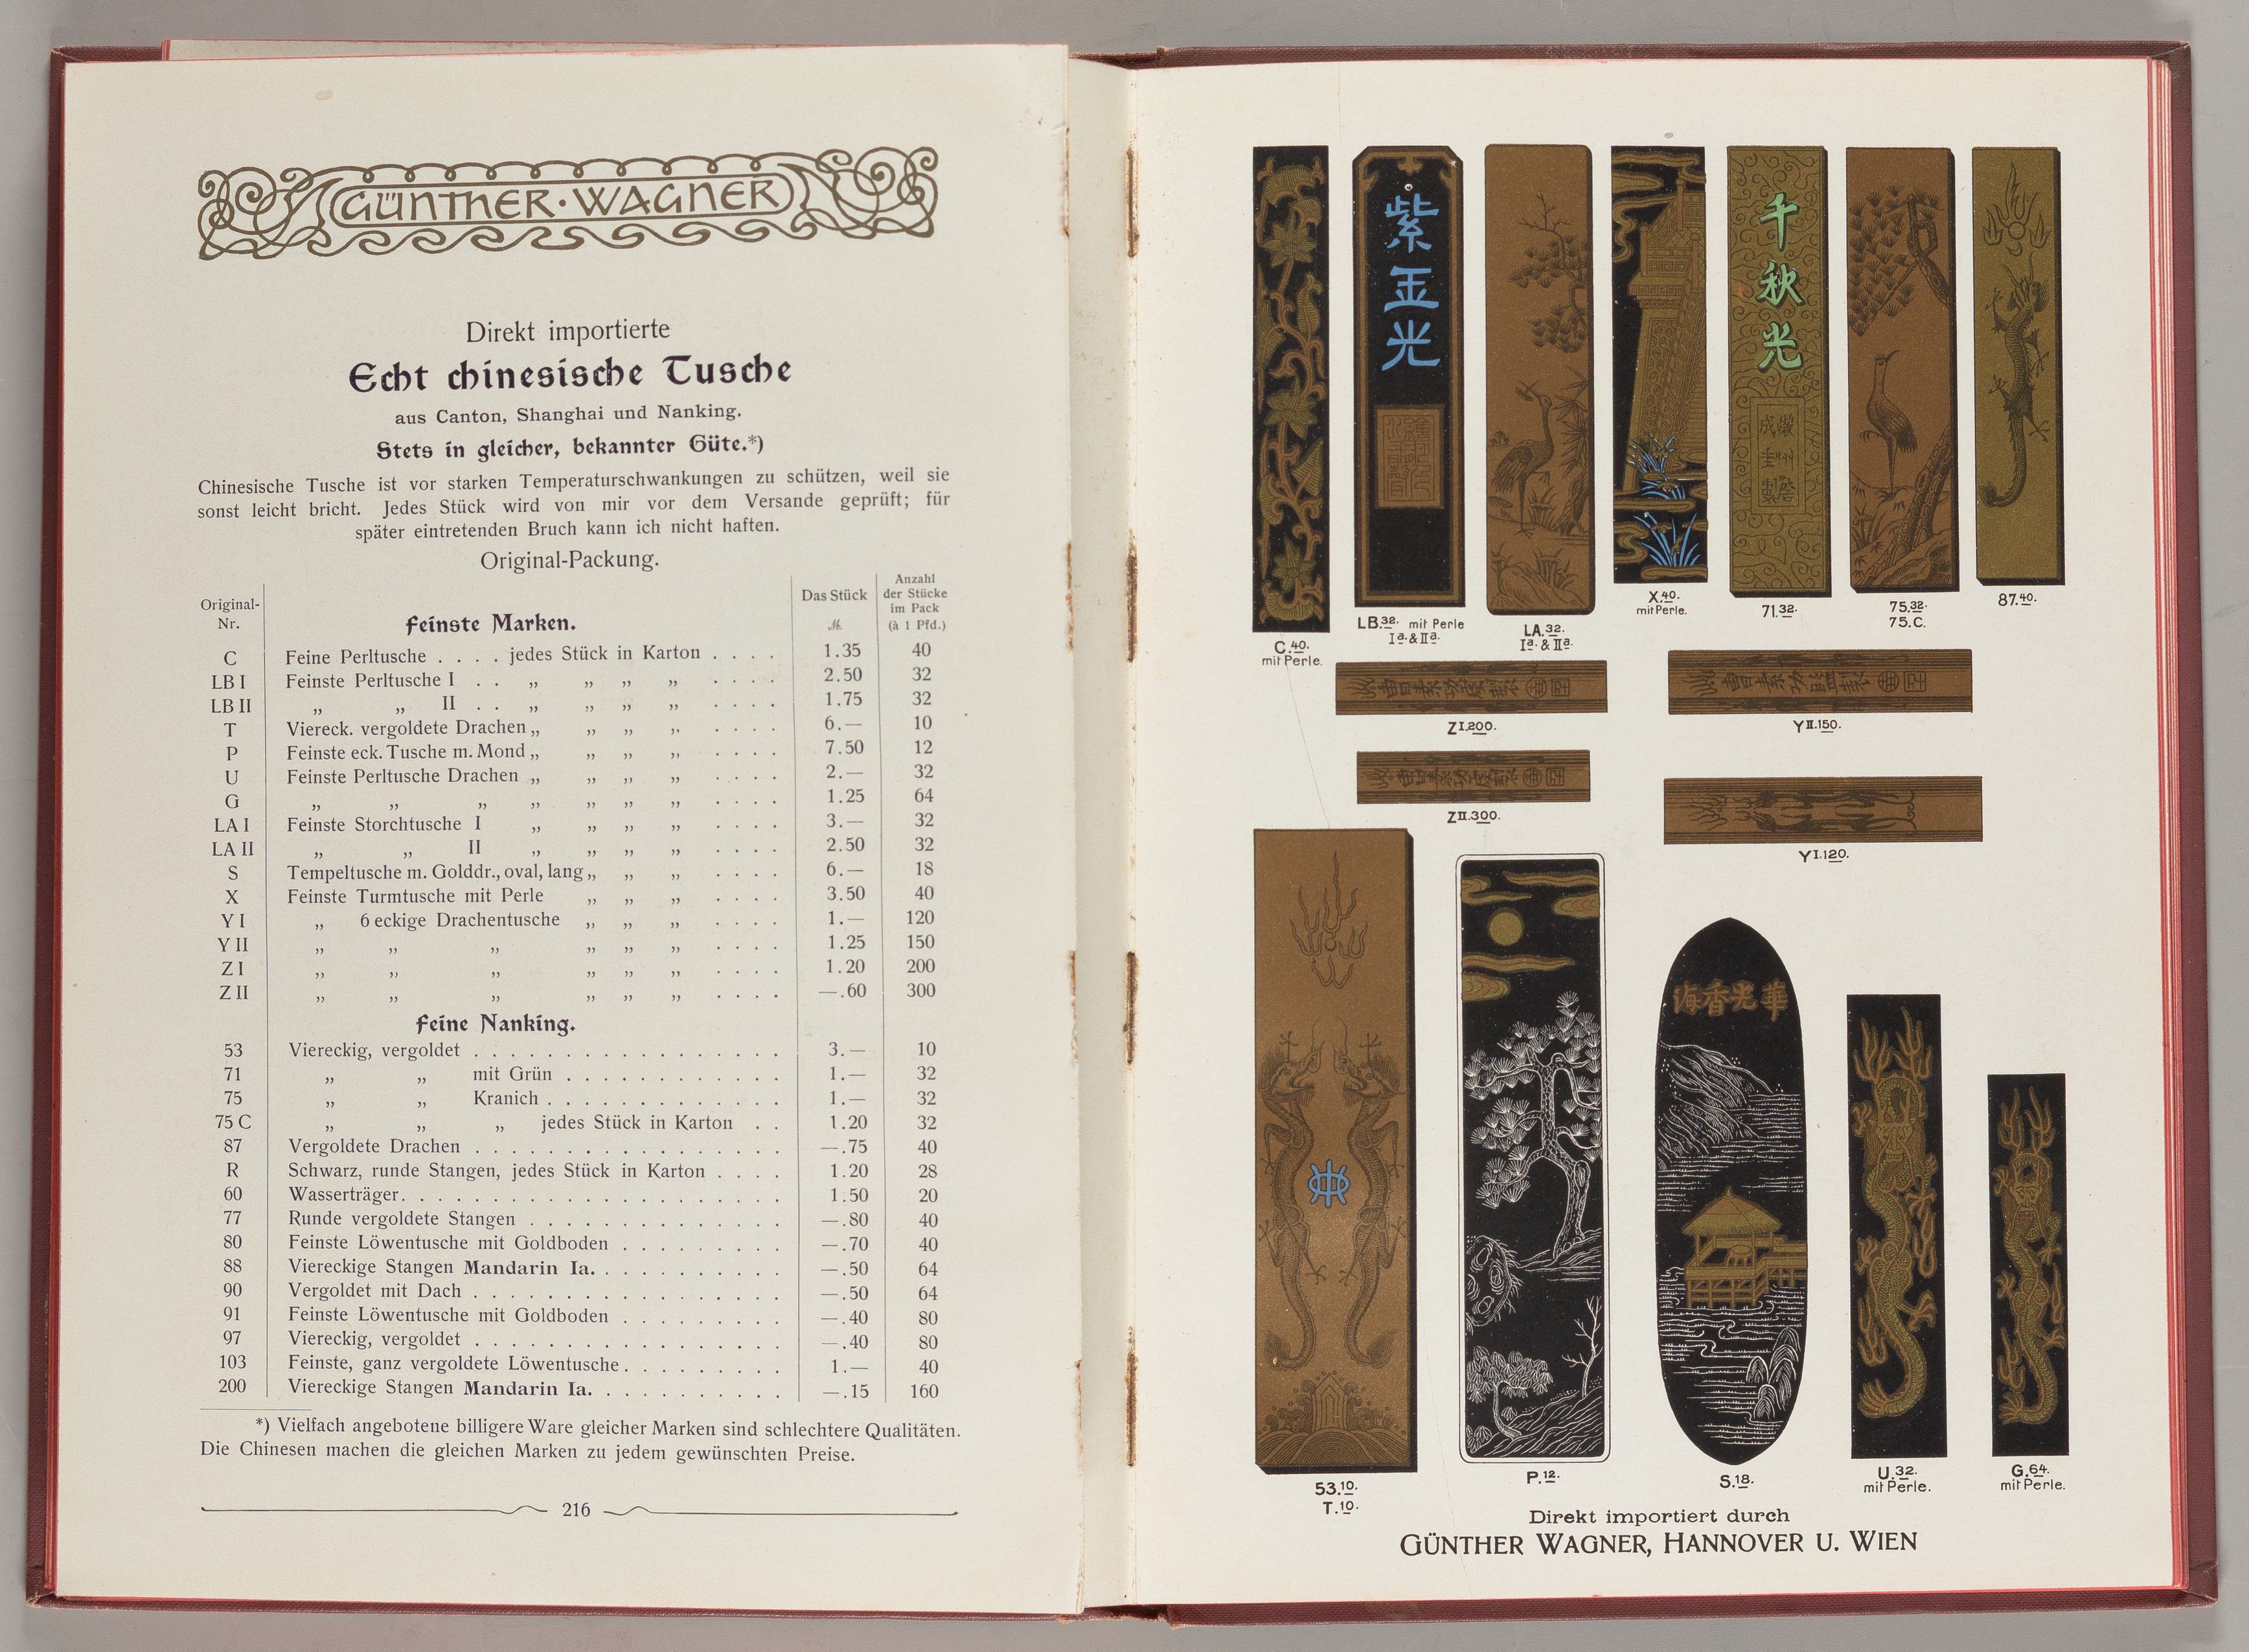 GÜNTHER · WAGNER
Direkt importierte
Echt chinesische Tusche
aus Canton, Shanghai und Nanking.
Stets in gleicher, bekannter Güte.*)
Chinesische Tusche ist vor starken Temperaturschwankungen zu schützen, weil sie
sonst leicht bricht. Jedes Stück wird von mir vor dem Versande geprüft; für
später eintretenden Bruch kann ich nicht haften.
Original-Packung.
Original-Nr. Feinste Marken. Das Stück ℳ. Anzahl der Stücke im Pack (à 1 Pfd.)
C Feine Perltusche . . . . jedes Stück in Karton . . . . 1.35 40
LB I Feinste Perltusche I . . „ „ „ „ . . . . 2.50 32
LB II „ „ II . . „ „ „ „ . . . . 1.75 32
T Viereck. vergoldete Drachen „ „ „ „ . . . . 6.— 10
P Feinste eck. Tusche m. Mond „ „ „ „ . . . . 7.50 12
U Feinste Perltusche Drachen „ „ „ „ . . . . 2.— 32
G „ „ „ „ „ „ „ . . . . 1.25 64
LA I Feinste Storchtusche I „ „ „ „ . . . . 3.— 32
LA II „ „ II „ „ „ „ . . . . 2.50 32
S Tempeltusche m. Golddr., oval, lang „ „ „ . . . . 6.— 18
X Feinste Turmtusche mit Perle „ „ „ . . . . 3.50 40
Y I „ 6 eckige Drachentusche „ „ „ . . . . 1.— 120
Y II „ „ „ „ „ „ . . . . 1.25 150
Z I „ „ „ „ „ „ . . . . 1.20 200
Z II „ „ „ „ „ „ . . . . —.60 300
Feine Nanking.
53 Viereckig, vergoldet . . . . . . . . . . . . . . . . . 3.— 10
71 „ „ mit Grün . . . . . . . . . . . . 1.— 32
75 „ „ Kranich . . . . . . . . . . . . . 1.— 32
75 C „ „ „ jedes Stück in Karton . . 1.20 32
87 Vergoldete Drachen . . . . . . . . . . . . . . . . . —.75 40
R Schwarz, runde Stangen, jedes Stück in Karton . . . . 1.20 28
60 Wasserträger. . . . . . . . . . . . . . . . . . . . . 1.50 20
77 Runde vergoldete Stangen . . . . . . . . . . . . . . —.80 40
80 Feinste Löwentusche mit Goldboden . . . . . . . . . —.70 40
88 Viereckige Stangen Mandarin Ia. . . . . . . . . . . —.50 64
90 Vergoldet mit Dach . . . . . . . . . . . . . . . . . —.50 64
91 Feinste Löwentusche mit Goldboden . . . . . . . . . —.40 80
97 Viereckig, vergoldet . . . . . . . . . . . . . . . . . —.40 80
103 Feinste, ganz vergoldete Löwentusche . . . . . . . . . 1.— 40
200 Viereckige Stangen Mandarin Ia. . . . . . . . . . . —.15 160
*) Vielfach angebotene billigere Ware gleicher Marken sind schlechtere Qualitäten.
Die Chinesen machen die gleichen Marken zu jedem gewünschten Preise.
216
紫玉光
千秋光
徽州詹
成圭製
C.40.
mit Perle.
LB.32. mit Perle
Ia. & IIa.
LA.32.
Ia. & IIa.
X.40.
mit Perle.
71.32.
75.32.
75.C.
87.40.
ZI.200.
YII.150.
ZII.300.
YI.120.
海香光華
53.10.
T.10.
P.12.
S.18.
U.32.
mit Perle.
G.64.
mit Perle.
Direkt importiert durch
GÜNTHER WAGNER, HANNOVER U. WIEN